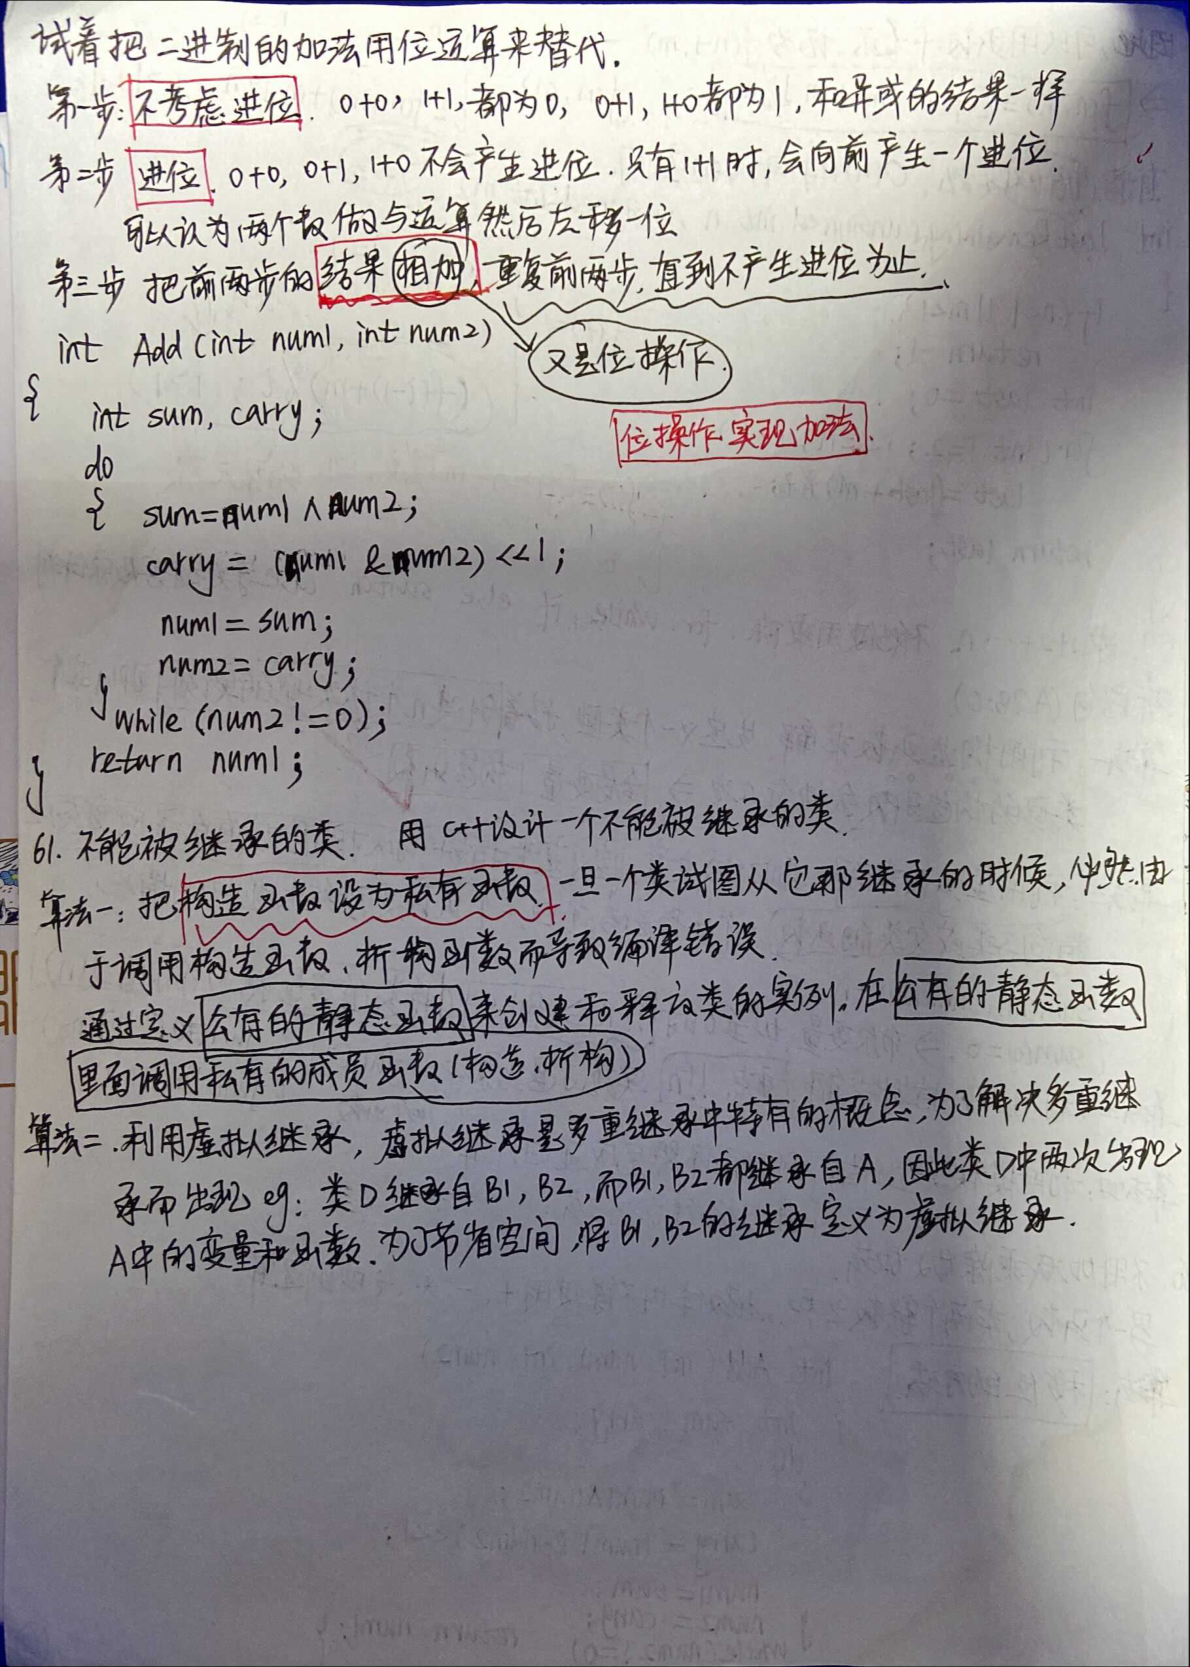 试着把二进制的加法用位运算来替代.
第一步: 不考虑进位. 0+0, 1+1, 都为0, 0+1, 1+0都为1, 和异或的结果一样
第二步 进位. 0+0, 0+1, 1+0 不会产生进位. 只有1+1时, 会向前产生一个进位.
可以认为两个数做与运算然后左移一位
第三步 把前两步的结果相加, 重复前两步, 直到不产生进位为止.
int Add (int num1, int num2)
又是位操作.
{
int sum, carry;
位操作实现加法.
do
{ sum=num1 ∧ num2;
carry = (num1 & num2) <<1;
num1 = sum;
num2 = carry;
} while (num2!=0);
return num1;
}
61. 不能被继承的类. 用C++设计一个不能被继承的类.
算法一: 把构造函数设为私有函数, 一旦一个类试图从它那继承的时候, 必然由
于调用构造函数、析构函数而导致编译错误.
通过定义公有的静态函数来创建和释放类的实例. 在公有的静态函数
里面调用私有的成员函数(构造.析构)
算法二. 利用虚拟继承, 虚拟继承是多重继承中特有的概念, 为了解决多重继
承而出现 eg: 类D继承自B1, B2, 而B1, B2都继承自A, 因此类D中两次出现
A中的变量和函数. 为了节省空间, 将B1, B2的继承定义为虚拟继承.